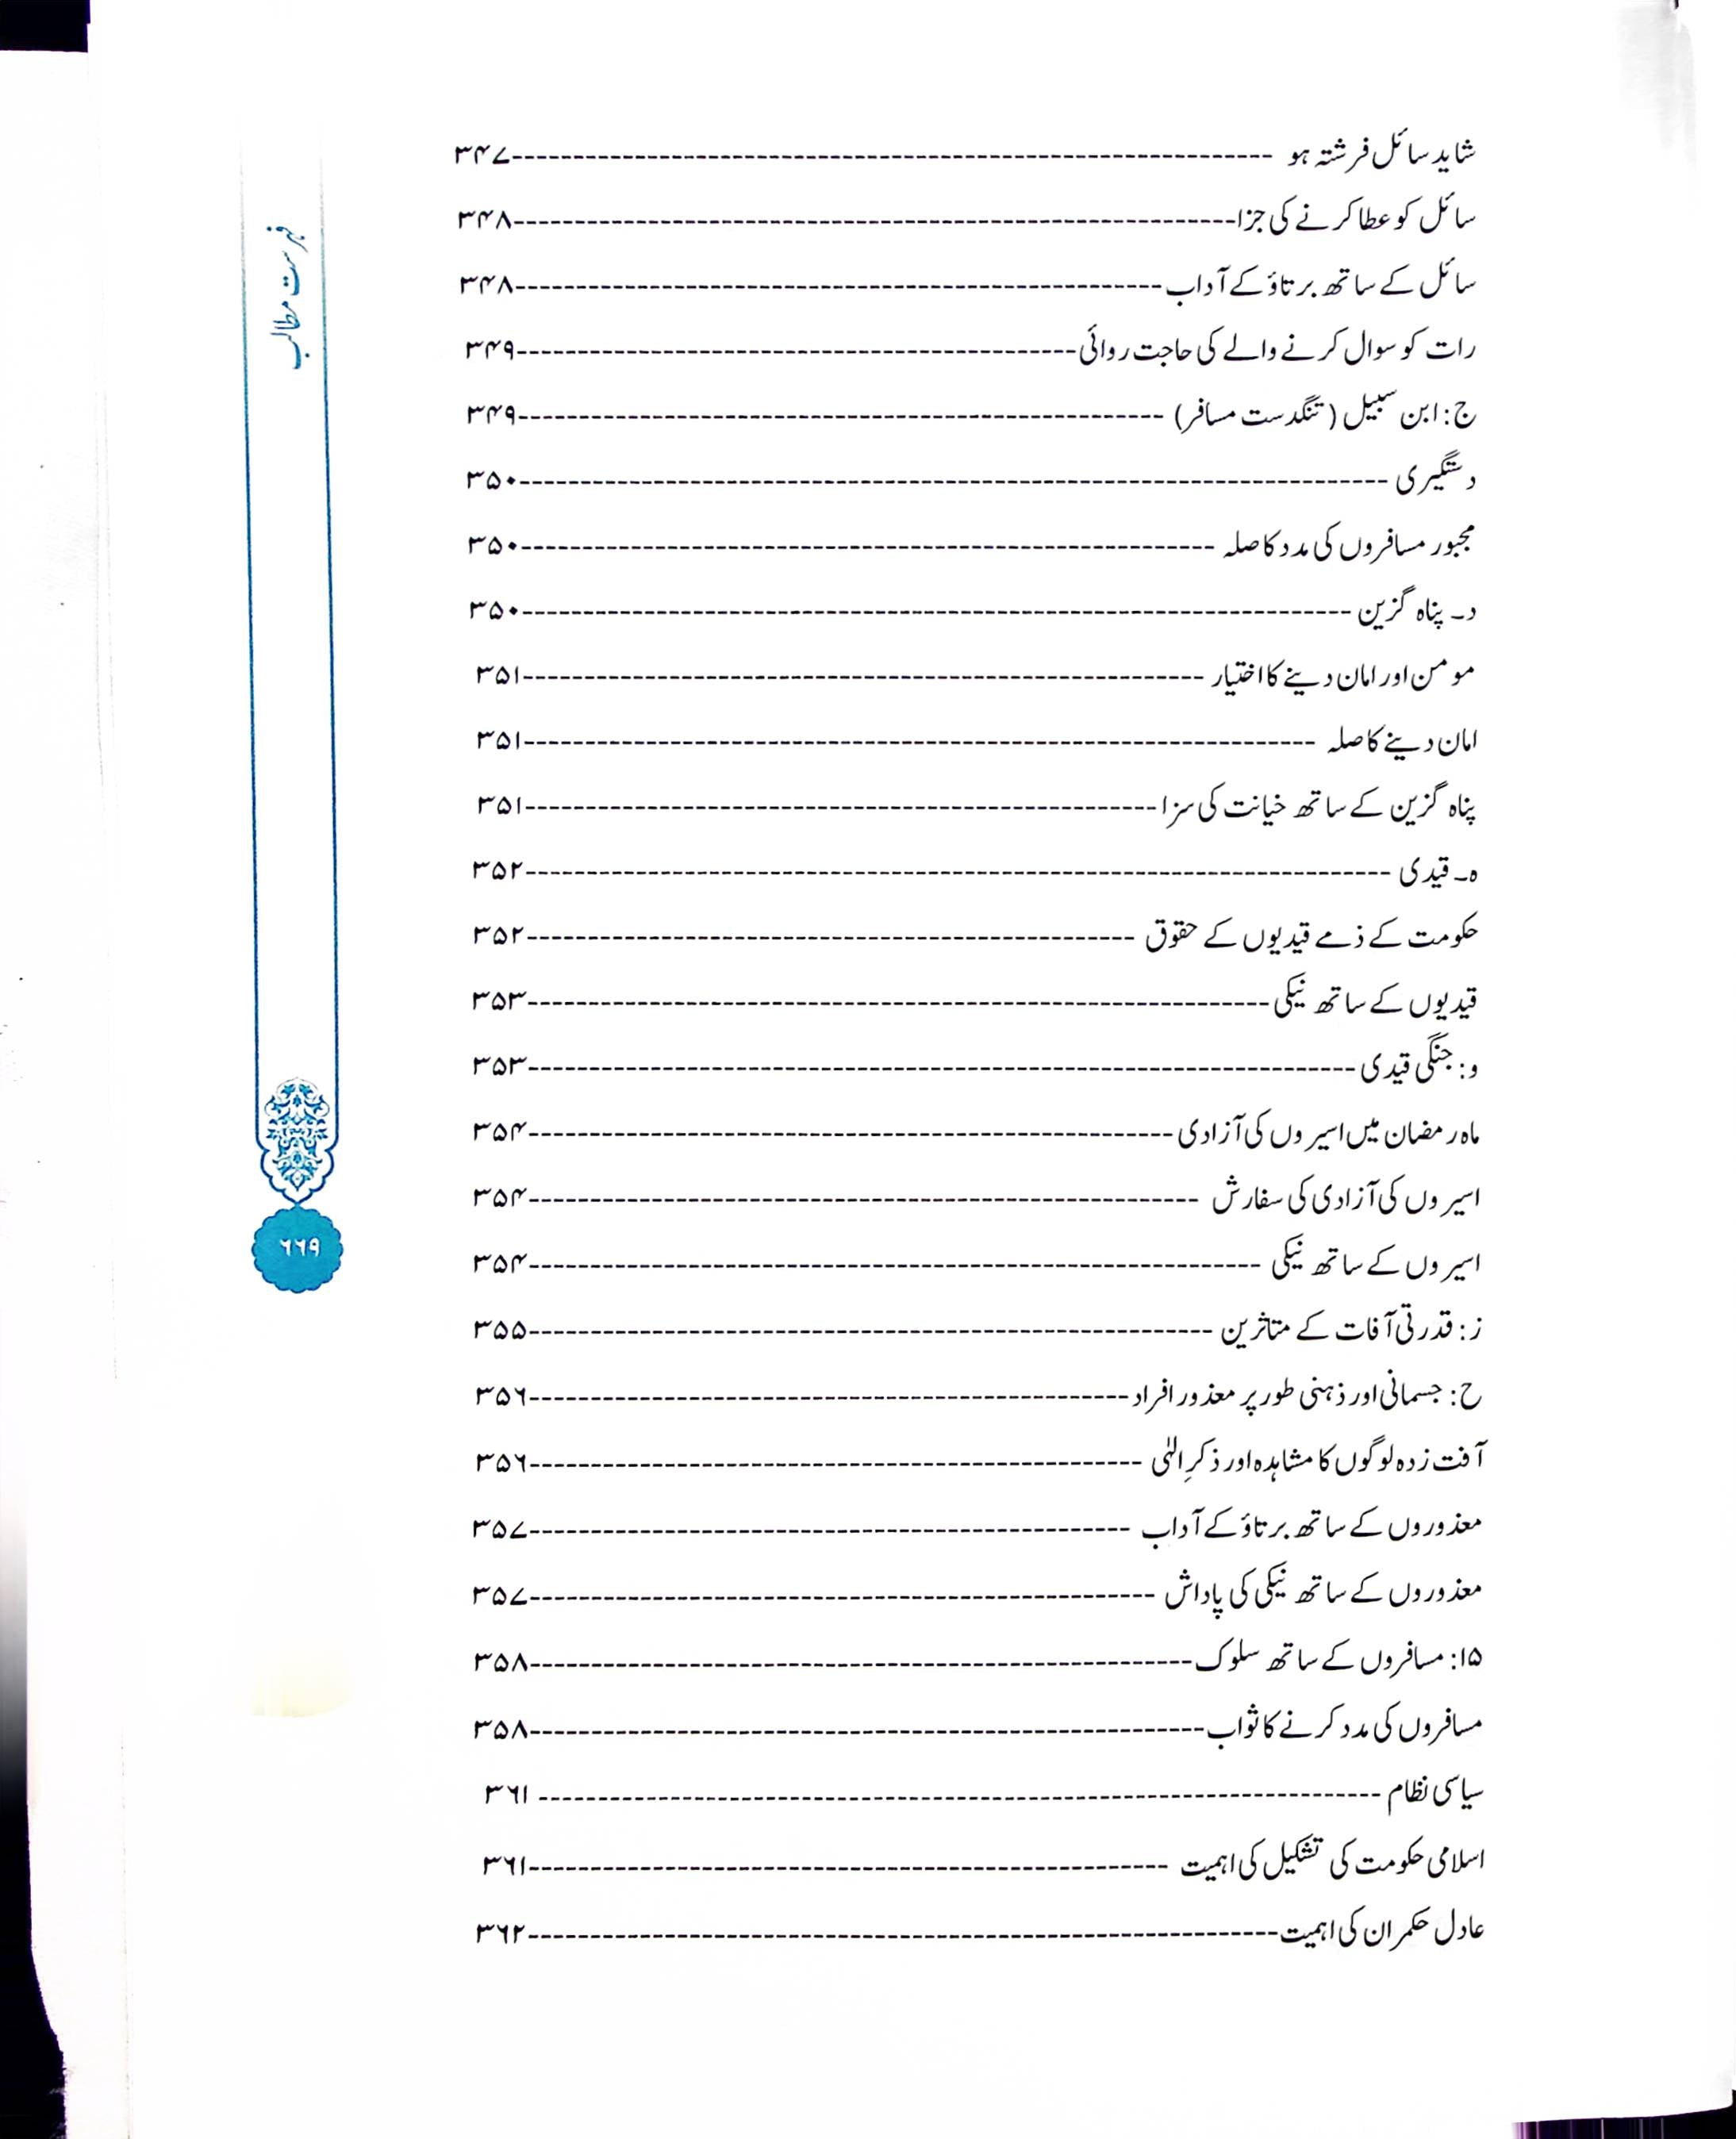 شاید سائل فرشتہ ہو ---------- ۳۴۷
سائل کو عطا کرنے کی جزا ---------- ۳۴۸
سائل کے ساتھ برتاؤ کے آداب ---------- ۳۴۸
رات کو سوال کرنے والے کی حاجت روائی ---------- ۳۴۹
ج: ابن سبیل (تنگدست مسافر) ---------- ۳۴۹
دستگیری ---------- ۳۵۰
مجبور مسافروں کی مدد کا صلہ ---------- ۳۵۰
د۔ پناہ گزین ---------- ۳۵۰
مومن اور امان دینے کا اختیار ---------- ۳۵۱
امان دینے کا صلہ ---------- ۳۵۱
پناہ گزین کے ساتھ خیانت کی سزا ---------- ۳۵۱
ہ۔ قیدی ---------- ۳۵۲
حکومت کے ذمے قیدیوں کے حقوق ---------- ۳۵۲
قیدیوں کے ساتھ نیکی ---------- ۳۵۳
و: جنگی قیدی ---------- ۳۵۳
ماہ رمضان میں اسیروں کی آزادی ---------- ۳۵۴
اسیروں کی آزادی کی سفارش ---------- ۳۵۴
اسیروں کے ساتھ نیکی ---------- ۳۵۴
ز: قدرتی آفات کے متاثرین ---------- ۳۵۵
ح: جسمانی اور ذہنی طور پر معذور افراد ---------- ۳۵۶
آفت زدہ لوگوں کا مشاہدہ اور ذکرِ الٰہی ---------- ۳۵۶
معذوروں کے ساتھ برتاؤ کے آداب ---------- ۳۵۷
معذوروں کے ساتھ نیکی کی پاداش ---------- ۳۵۷
۱۵: مسافروں کے ساتھ سلوک ---------- ۳۵۸
مسافروں کی مدد کرنے کا ثواب ---------- ۳۵۸
سیاسی نظام ---------- ۳۶۱
اسلامی حکومت کی تشکیل کی اہمیت ---------- ۳۶۱
عادل حکمران کی اہمیت ---------- ۳۶۲
فہرست مطالب
۶۶۹